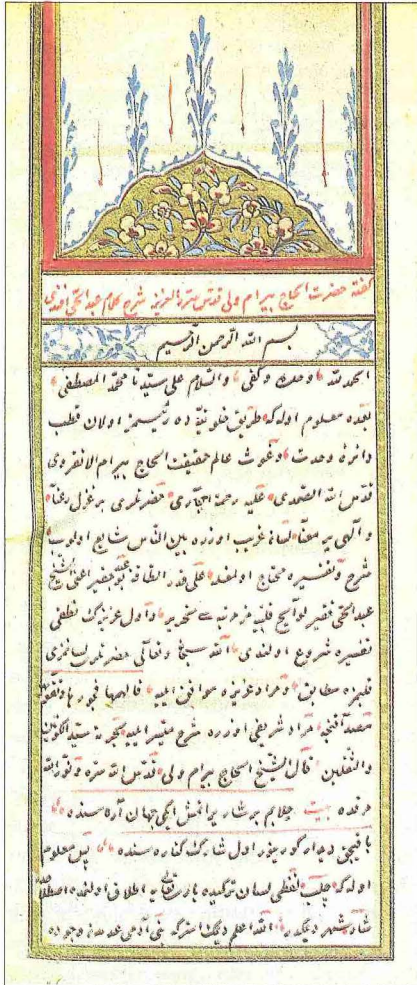 كفتهٔ حضرت الحاج بيرام ولى قدس سره العزيز شرح كلام عبد الحى افندى
بسم الله الرحمن الرحيم
الحمد لله وحده وكفى والسلام على سيدنا محمد المصطفى
بعده معلوم اوله كه طريق خلوتيه ده رئيسمز اولان قطب
دائرهٔ وحدت وغوث عالم حقيقت الحاج بيرام الانقروى
قدس الله الصمدى عليه رحمة البارى حضرتلرى بر غزل رعنا
و الهى پر معنا لسانه غريب اوزره بين الناس شايع اولوب
شرح وتفسيره محتاج اولمغله على قدر الطاقه الشيخ
عبد الحى قلبه تحرير واول عزيزك نطقى
تفسيره شروع اولندى الله سبحانه وتعالى حضرتلرى لسانمزى
قلبزه مطابق ومراد عزيزه موافق ايليه فالهمها فجورها وتقويها
مراد شريفى اوزره شرح ميسر ايليه بحرمة سيد الكونين
والثقلين قال الشيخ الحاج بيرام ولى قدس الله سره ونور الله
مرقده بيت چلابم بر شار يراتمش ايكى جهان آره سنده
باقيجق ديدار كورينور اول شارك كناره سنده پس معلوم
اوله كه چلب لفظى لسان تركيده بارى تعالى يه اطلاق اولنور
شار شهر ديمكدر الله اعلم ديمك استر كه بنى آدمى عدمدن وجوده